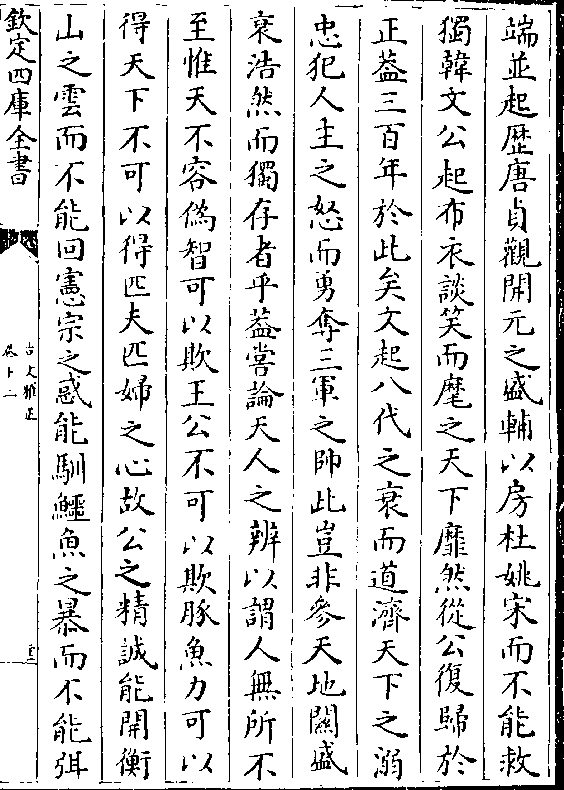 端並起歴唐貞觀開元之盛輔以房杜姚宋而不能救
獨韓文公起布衣談笑而麾之天下靡然從公復歸於
正葢三百年於此矣文起八代之衰而道濟天下之溺
忠犯人主之怒而勇奪三軍之帥此豈非參天地關盛
衰浩然而獨存者乎葢嘗論天人之辨以謂人無所不
至惟天不容偽智可以欺王公不可以欺豚魚力可以
得天下不可以得匹夫匹婦之心故公之精誠能開衡
山之雲而不能回憲宗之惑能馴鱷魚之暴而不能弭
欽定四庫全書
古文雅正
卷十二